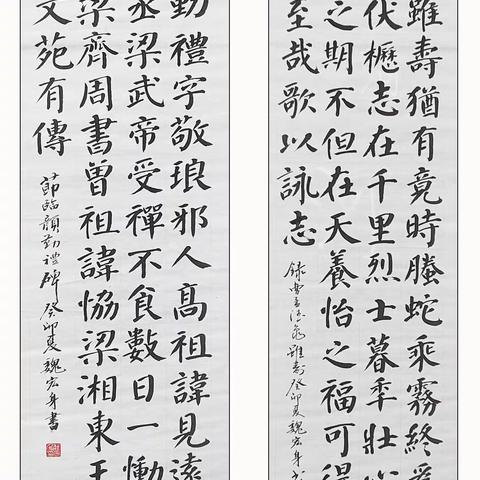 雖壽猶有竟時螣蛇乘霧終爲
伏櫪志在千里烈士暮秊壯心
之期不但在天養怡之福可得
至哉歌以詠志
龜雖壽癸卯夏魏宏身
勤禮字敬琅邪人高祖諱見遠
丞梁武帝受禪不食數日一慟
梁齊周書曾祖諱協梁湘東王
文苑有傳
節臨顏勤禮碑 癸卯夏魏宏身書